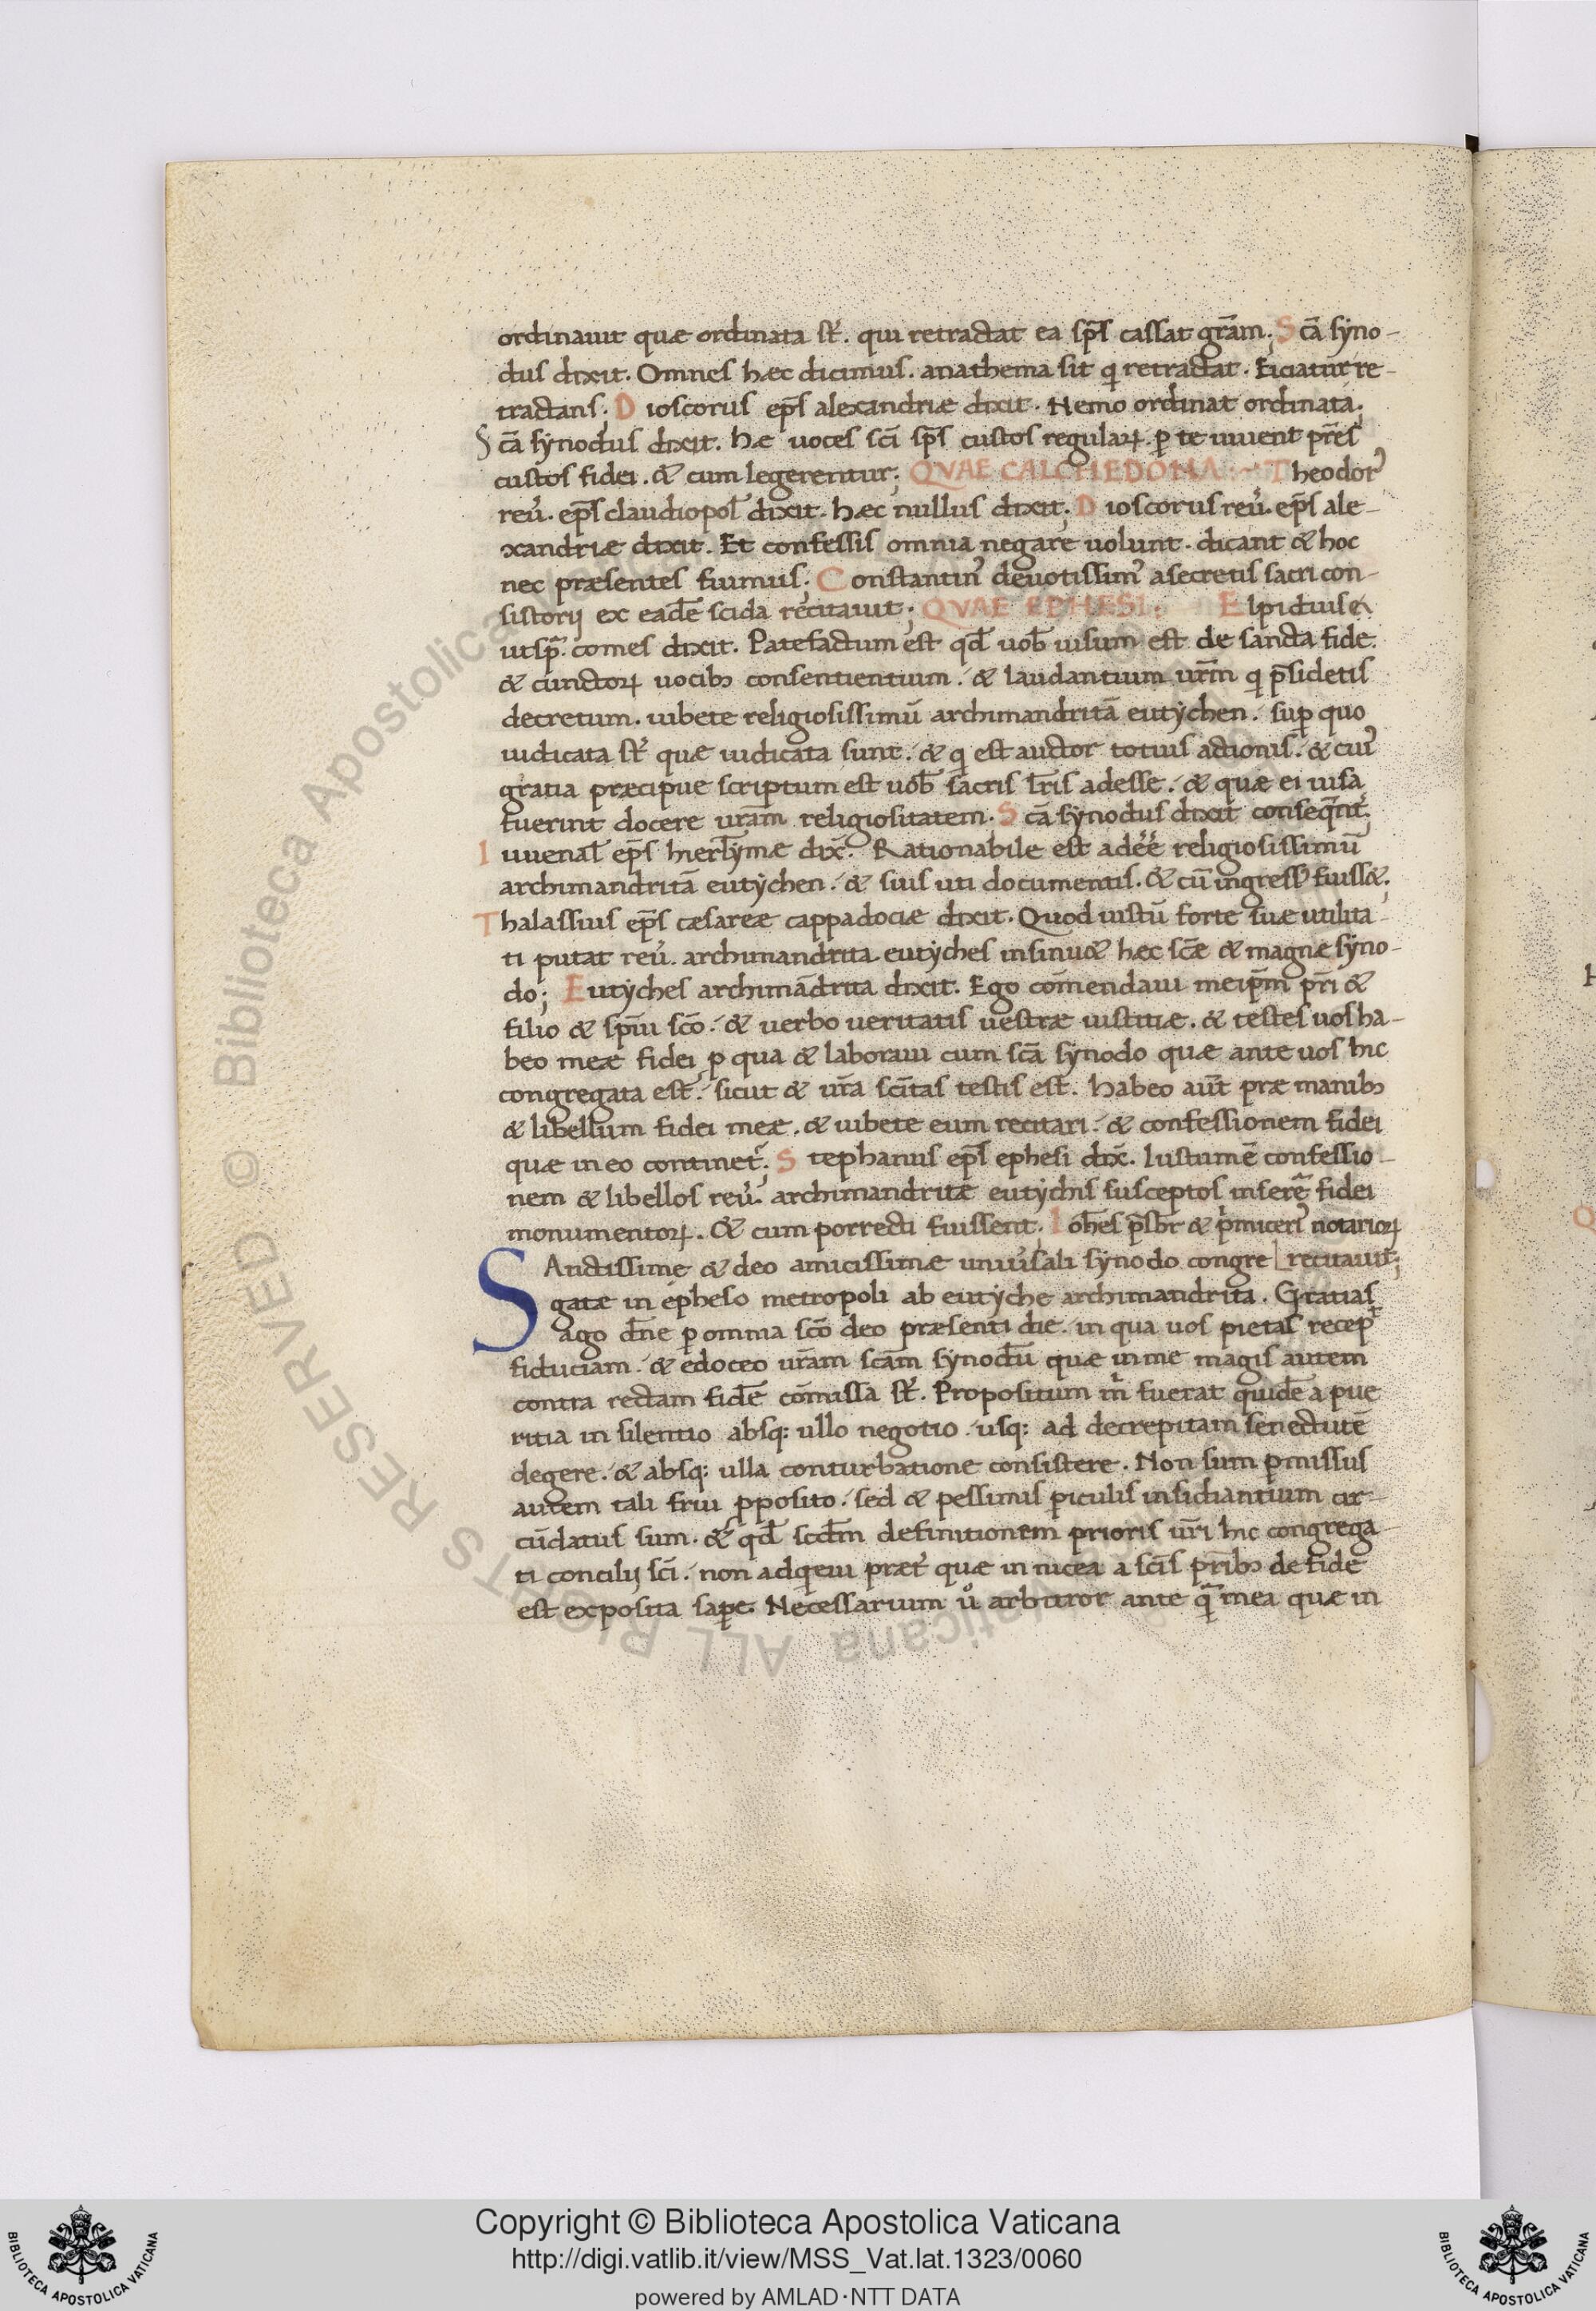 ordinauit quæ ordinata st̄. qui retractat ea sp̄s cassat grām; Scā syno-
dus dixit. Omnes hæc dicimus. anathema sit q̇ retractat. Eiciatur re-
tractans; Dioscorus ep̄s alexandriæ dixit. Nemo ordinat ordinata;
Scā synodus dixit. hæ uoces sc̄i sp̄s custos regularꝝ. ꝑ te uiuent pr̄es
custos fidei. & cum legerentur; QVAE CALCHEDONIA :~ Theodorꝰ
reu̓. ep̄s claudiopol̄ dixit. hæc nullus dixit; Dioscorus reu̓. ep̄s ale-
xandriæ dixit. Et confessis omnia negare uolunt. dicant & hoc
nec præsentes fuimus; Constantinꝰ deuotissimꝰ asecretis sacri con-
sistorij ex eadē scida recitauit; QVAE EPHESI; Elpidius
utsp̄. comes dixit. Patefactum est qd̄ uob̄ uisum est de sancta fide.
& cunctorꝝ uocibꝫ consentientium. & laudantium ur̄m q̇ p̄sidetis
decretum. iubete religiosissimū archimandritā eutychen. suꝑ quo
iudicata st̄ quæ iudicata sunt. & q̇ est auctor totius actionis. & cuiꝰ
gratia præcipue scriptum est uob̄ sacris lr̄is adesse. & quæ ei uisa
fuerint docere ur̄am religiositatem. Scā synodus dixit conseq̄nt̄;
Iuuenal̄ ep̄s hierl̄ymæ dix̄. Rationabile est adēē religiosissimū
archimandritā eutychen. & suis uti documentis. & cū ingressꝰ fuiss&;
Thalassius ep̄s cæsareæ cappadociæ dixit. Quod iustū forte suæ utilita-
ti putat reu̓. archimandrita eutyches insinu& hæc sc̄æ & magnæ syno-
do; Eutyches archimādrita dixit. Ego cōmendaui meip̄m pr̄i &
filio & sp̄iu sc̄o. & uerbo ueritatis uestræ iustitiæ. & testes uos ha-
beo meæ fidei ꝓ qua & laboraui cum sc̄a synodo quæ ante uos hic
congregata est. sicut & ur̄a sc̄itas testis est. habeo aut̄ præ manibꝫ
& libellum fidei meæ. & iubete eum recitari. & confessionem fidei
quæ in eo continet̄; Stephanus ep̄s ephesi dix̄. Iustum ē confessio-
nem & libellos reu̓. archimandritæ eutychis susceptos inserē fidei
monumentorꝝ. & cum porrecti fuissent; Ioh̄es p̄sbr̄ & p̓micerꝰ notariorꝝ
SAnctissimæ & deo amicissimæ uniu̓sali synodo congre [recitauit;
gatæ in epheso metropoli ab eutyche archimandrita. Gratias
ago dn̄e ꝑ omnia sc̄o deo præsenti die. in qua uos pietas recep̄
fiduciam. & edoceo ur̄am sc̄am synodū quæ in me magis autem
contra rectam fidē cōmissa st̄. Propositum m̓ fuerat quidē a pue
ritia in silentio absq: ullo negotio. usq: ad decrepitam senectutē
degere. & absq: ulla conturbatione consistere. Non sum ꝑmissus
autem tali frui ꝓposito. sed & pessimis ꝑiculis insidiantium cir-
cūdatus sum. & qd̄ scd̄m definitionem prioris ur̄i hic congrega-
ti concilij sc̄i. non adq̇eui præt̄ quæ in nicea a sc̄is prib̄ꝫ de fide
est exposita saꝑe. Necessarium u̓o arbitror ante q̄ mea quæ in
Copyright © Biblioteca Apostolica Vaticana
http://digi.vatlib.it/view/MSS_Vat.lat.1323/0060
powered by AMLAD·NTT DATA